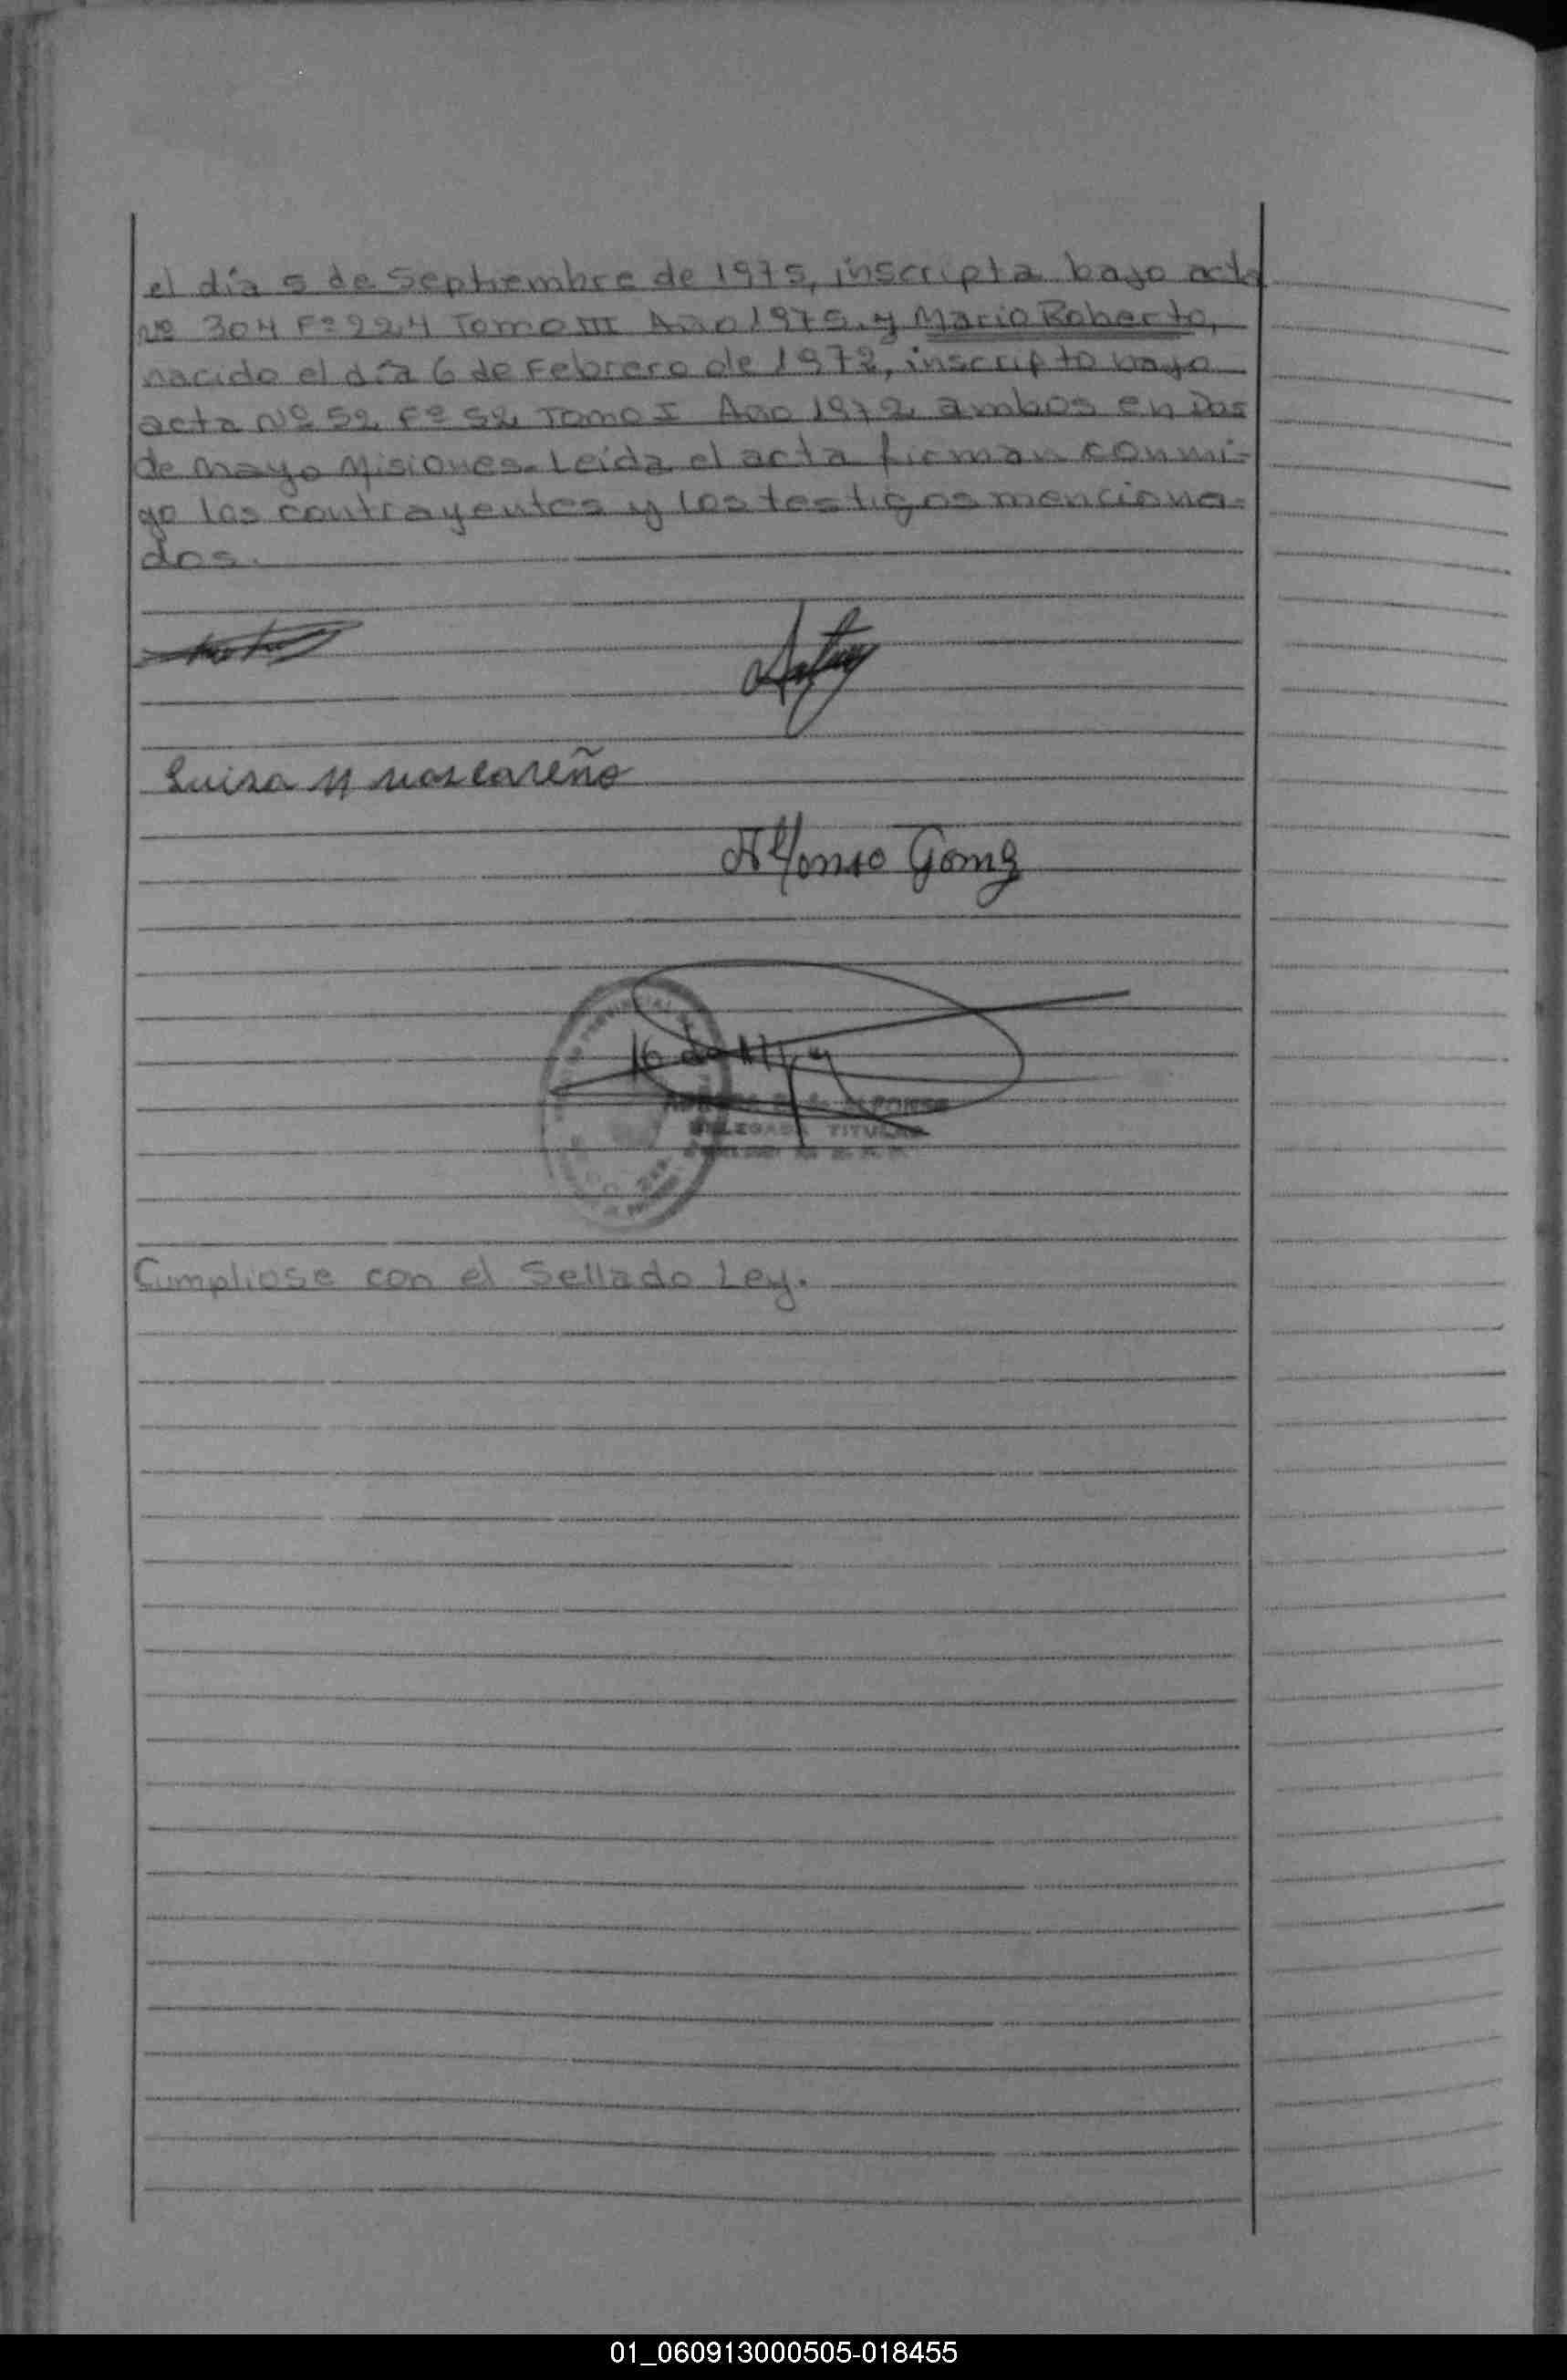 el día 5 de Septiembre de 1975, inscripta bajo acta
Nº 304 Fº 224 Tomo III Año 1975. y Mario Roberto,
nacido el día 6 de Febrero de 1972, inscripto bajo
acta Nº 52 Fº 52 Tomo I Año 1972 ambos en Dos
de Mayo Misiones. Leida el acta firman conmi-
go los contrayentes y los testigos menciona-
dos.
Luisa
Alfonso Gomez
DELEGADA TITULAR
Cumpliose con el Sellado Ley.
01_060913000505-018455